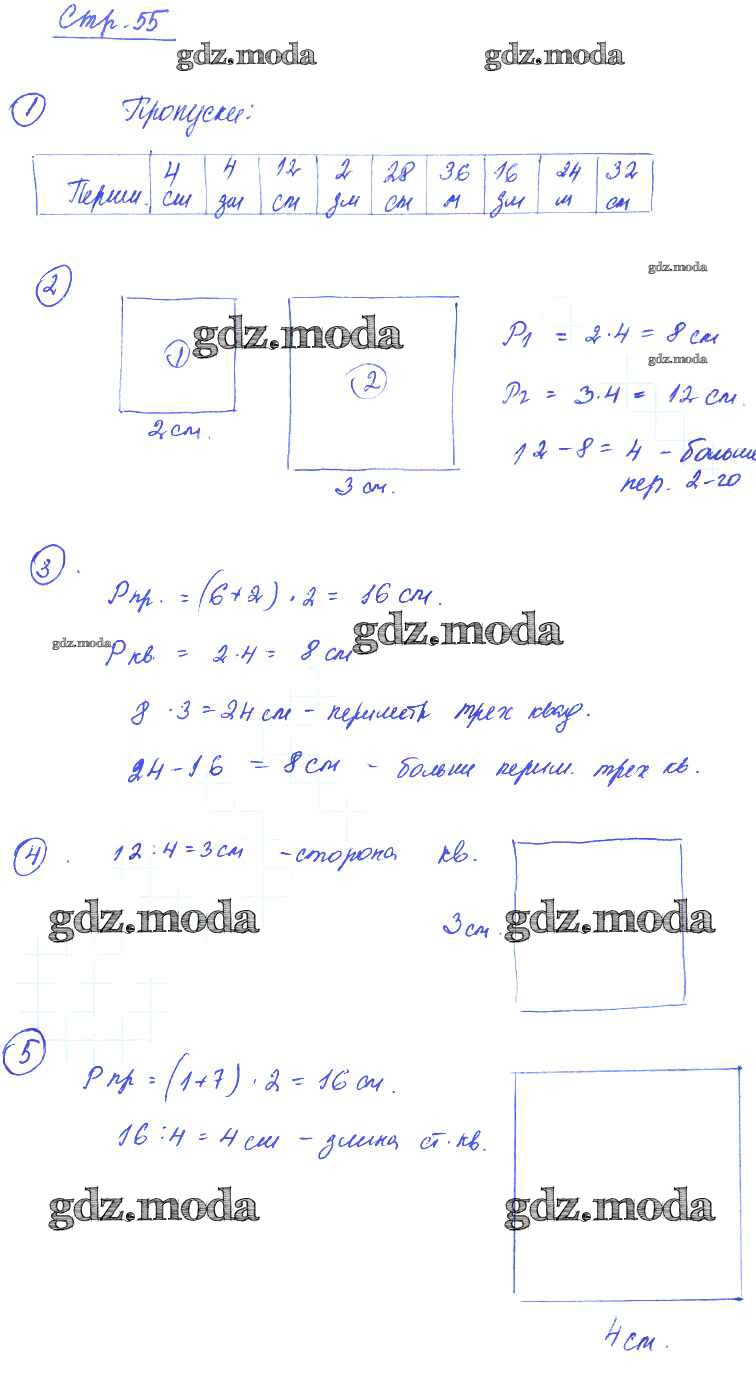 Стр. 55
gdz.moda gdz.moda
1 Пропуски:
Перим. 4 см 4 дм 12 см 2 дм 28 см 36 м 16 дм 24 м 32 см
2
gdz.moda
gdz.moda
1
2
2 см.
3 см.
P1 = 2·4 = 8 см
gdz.moda
P2 = 3·4 = 12 см.
12 - 8 = 4 - больше
пер. 2-го
3.
Pпр. = (6+2) · 2 = 16 см.
gdz.moda gdz.moda
Pкв = 2·4 = 8 см
8 · 3 = 24 см - периметр трех квад.
24 - 16 = 8 см - больше перим. трех кв.
4. 12 : 4 = 3 см - сторона кв.
gdz.moda 3 см. gdz.moda
5
Pпр = (1+7) · 2 = 16 см.
16 : 4 = 4 см - длина ст. кв.
gdz.moda gdz.moda
4 см.